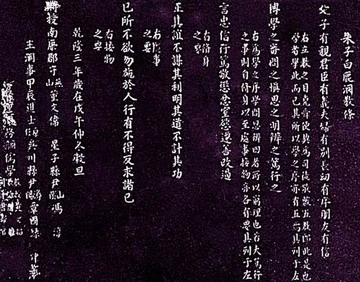 朱子白鹿洞教條
父子有親君臣有義夫婦有別長幼有序朋友有信
右五教之目堯舜使契為司徒敬敷五教即此是也
學者學此而已其所以學之序亦有五焉其別如左
博學之審問之慎思之明辨之篤行之
右為學之序學問思辨四者所以窮理也若夫篤行
之事則自修身以至處事接物亦各有要其別如左
言忠信行篤敬懲忿窒慾遷善改過
右修身之要
正其誼不謀其利明其道不計其功
右處事之要
己所不欲勿施於人行有不得反求諸己
右接物之要
乾隆三年歲在戊午仲冬穀旦
南康郡守 董文偉 星子縣尹 馮淳
主洞事甲辰進士 川縣尹 章國